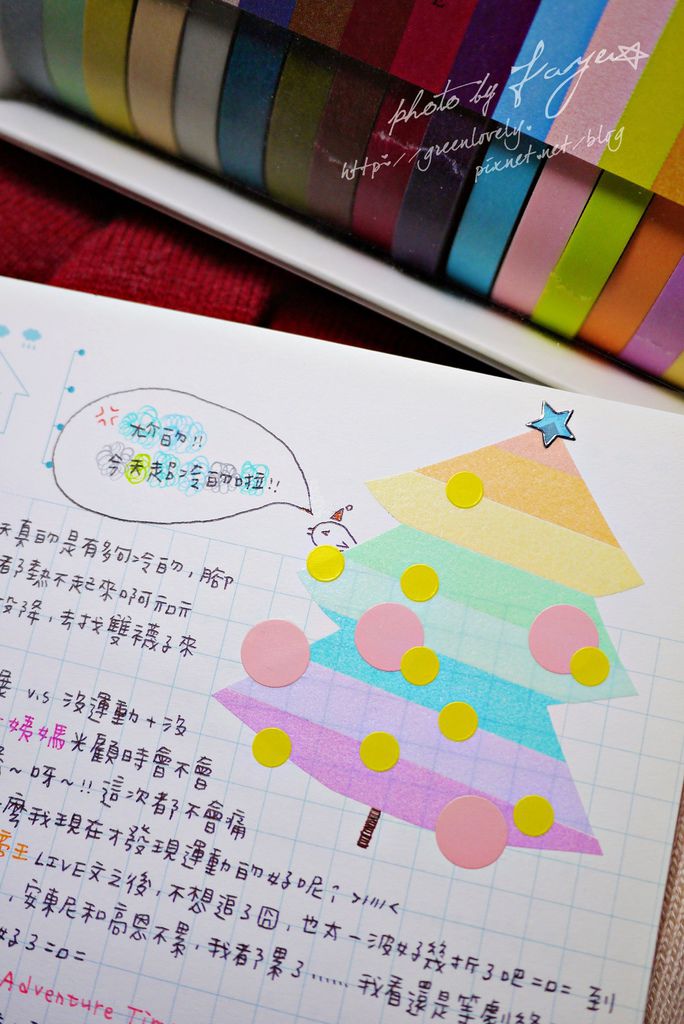 photo by Faye☆
http://greenlovely.
pixnet.net/blog
尬的!!
今天超冷的啦!!
天真的是有夠冷的，腳
都熱不起來啊元元
投降，去找雙襪子來
v.s 沒運動+沒
姨媽光顧時會不會
~呀~!! 這次都不會痛
麼我現在才發現運動的好呢; >////<
帝王LIVE文之後，不想追了囧，也太一波好幾折了吧=□= 到
，安東尼和高恩不累，我看都累了……我看還是等劇終
好了=□=
Adventure Tim